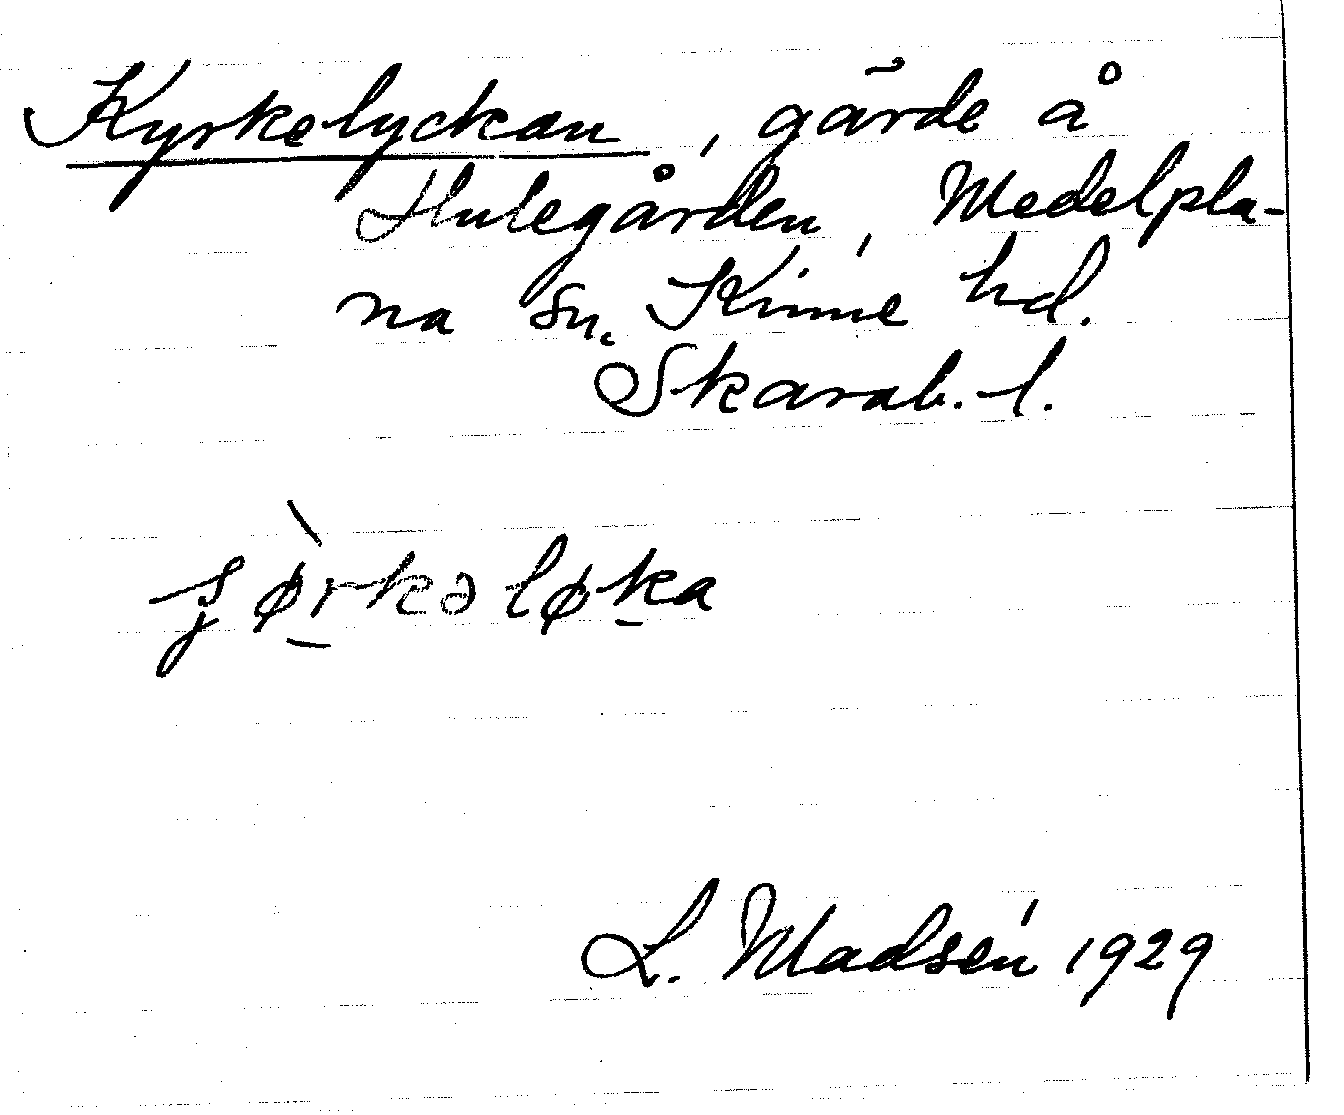 Kyrkelyckan, gärde å
Hulegården, Medelpla-
na sn. Kinne hd.
Skarab. l.
ʂø̀rkəløka
L. Madsén 1929